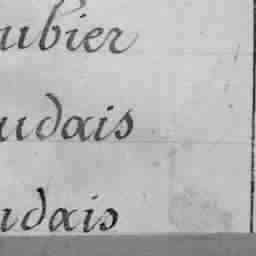 ubier
udais
udais